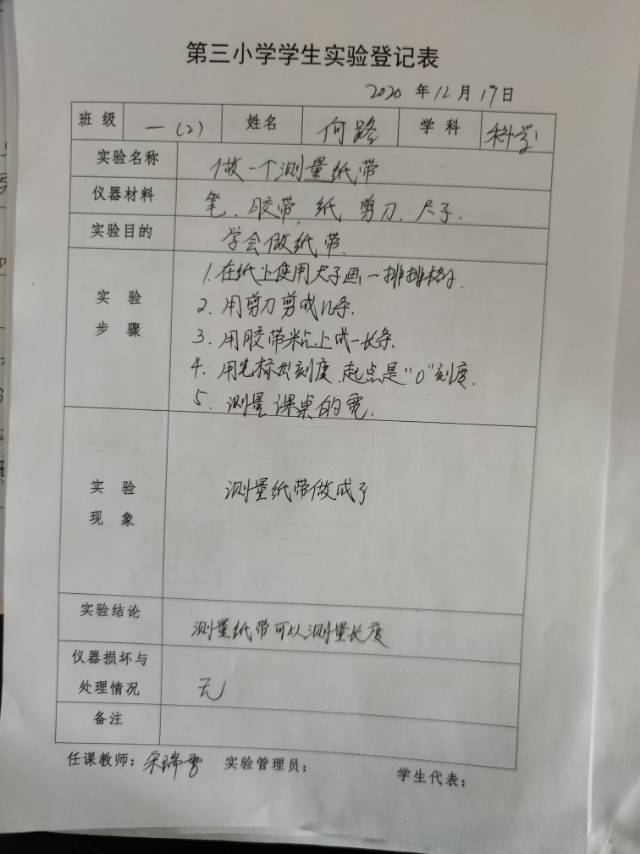 第三小学学生实验登记表
2020 年 12 月 17 日
班级 一(2) 姓名 何路 学科 科学
实验名称 做一个测量纸带
仪器材料 笔、胶带、纸、剪刀、尺子.
实验目的 学会做纸带.
实验步骤
1.在纸上使用尺子画一排排格子.
2.用剪刀剪成几条.
3.用胶带粘上成一长条.
4.用笔标出刻度,起点是“0”刻度.
5.测量课桌的宽.
实验现象 测量纸带做成了
实验结论 测量纸带可以测量长度
仪器损坏与处理情况 无
备注
任课教师: 实验管理员: 学生代表: